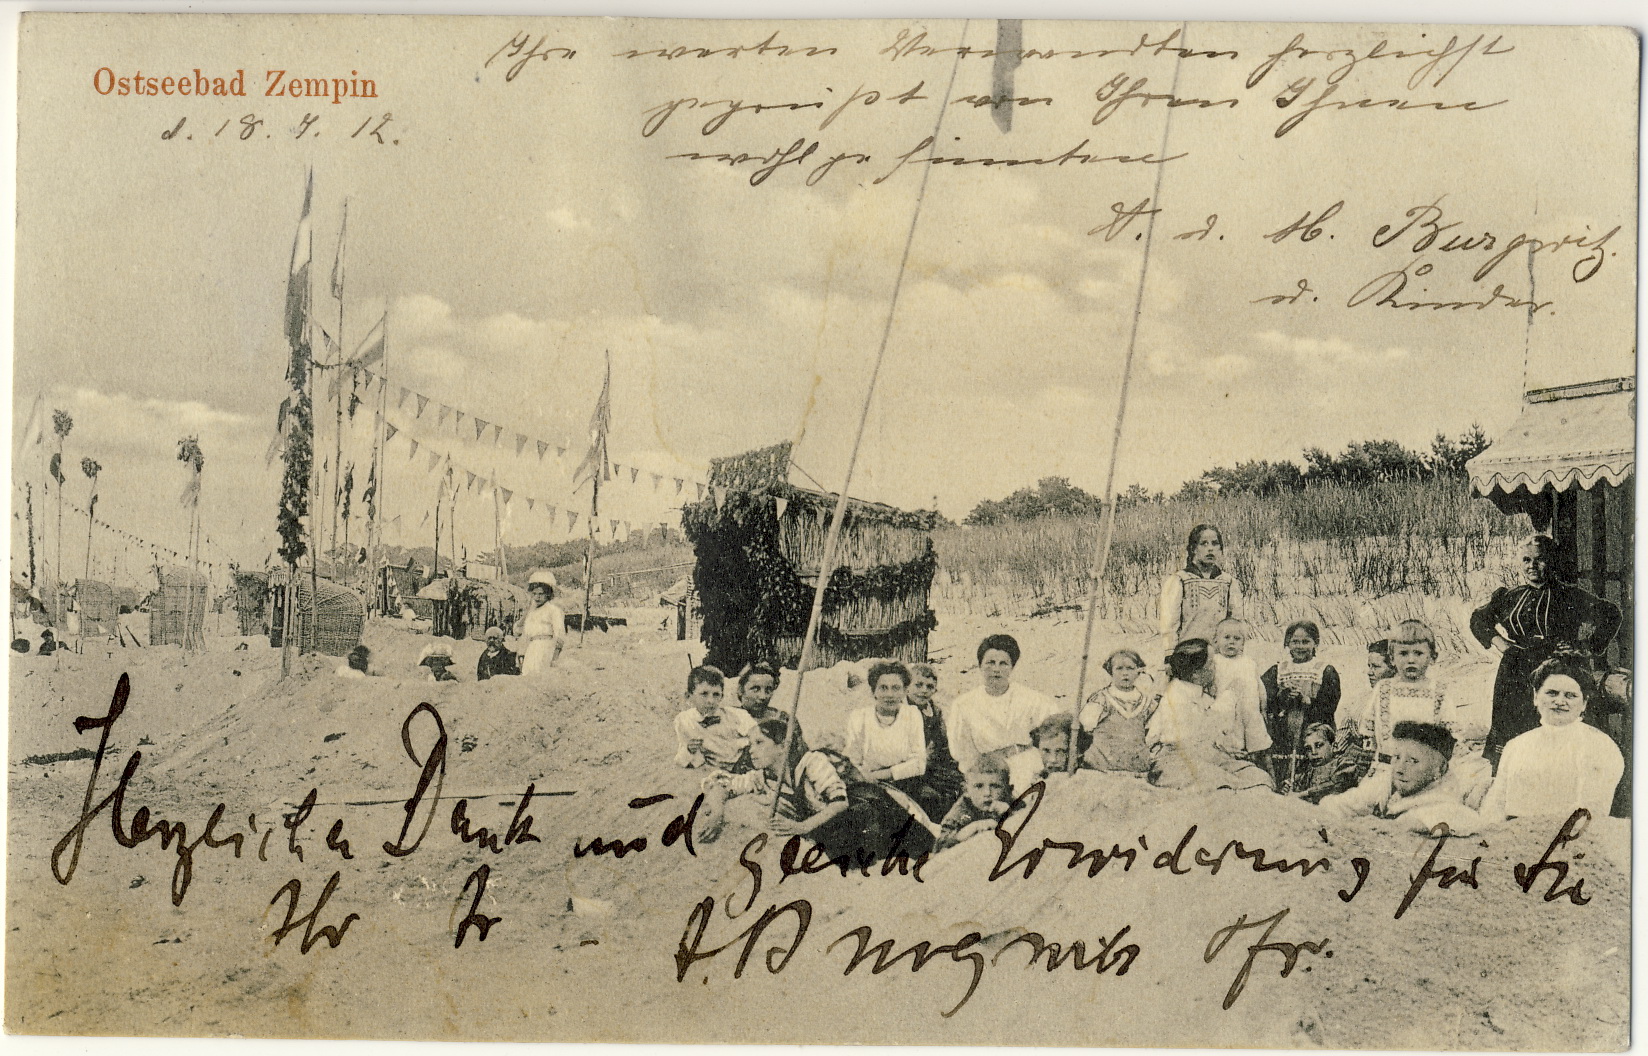 Ostseebad Zempin
d. 18. 7. 12.
Ihre werten Verwandten herzlichst
gegrüßt von Ihren Ihnen
wohlgesinnten
A. u. M. Burgwitz.
u. Kinder.
Herzlichen Dank und gleiche Erwiderung für Sie
Ihr
A. Burgwitz